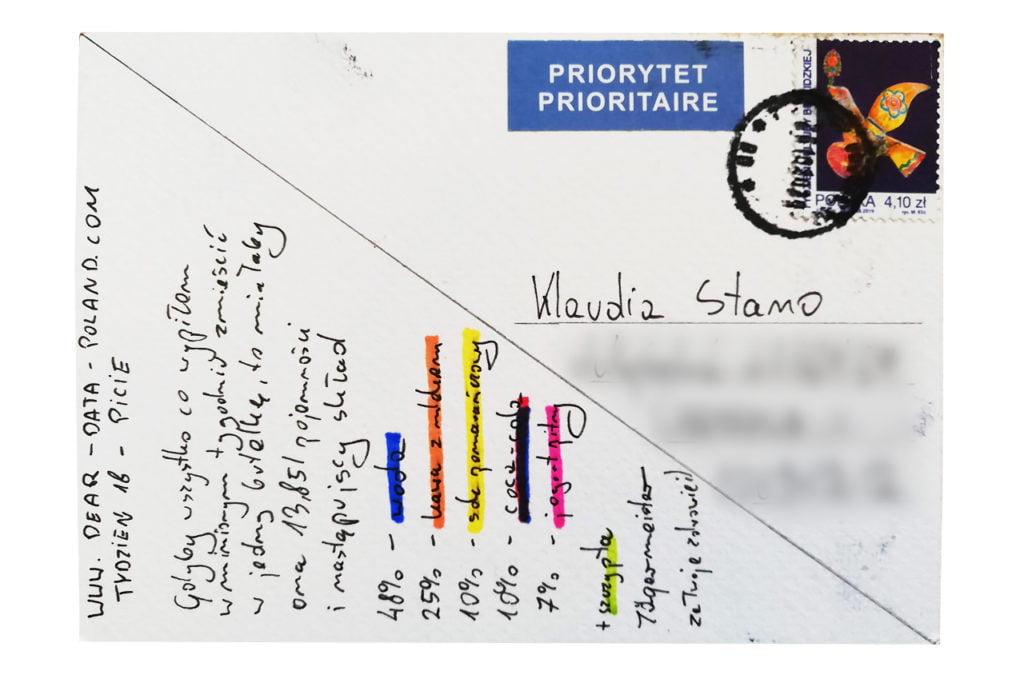 WWW. DEAR - DATA - POLAND.COM
TYDZIEŃ 16 - PICIE
Gdyby wszystko co wypiłam
w minionym tygodniu zmieścić
w jedną butelkę, to miałaby
ona 13,85l pojemności
i następujący skład
48% - woda
25% - kawa z mlekiem
10% - sok pomarańczowy
10% - coca-cola
7% - jogurt pitny
+ szczypta
Jägermeister
za twoje zdrowie!)
PRIORYTET
PRIORITAIRE
POLSKA 4,10 zł
Klaudia Stano